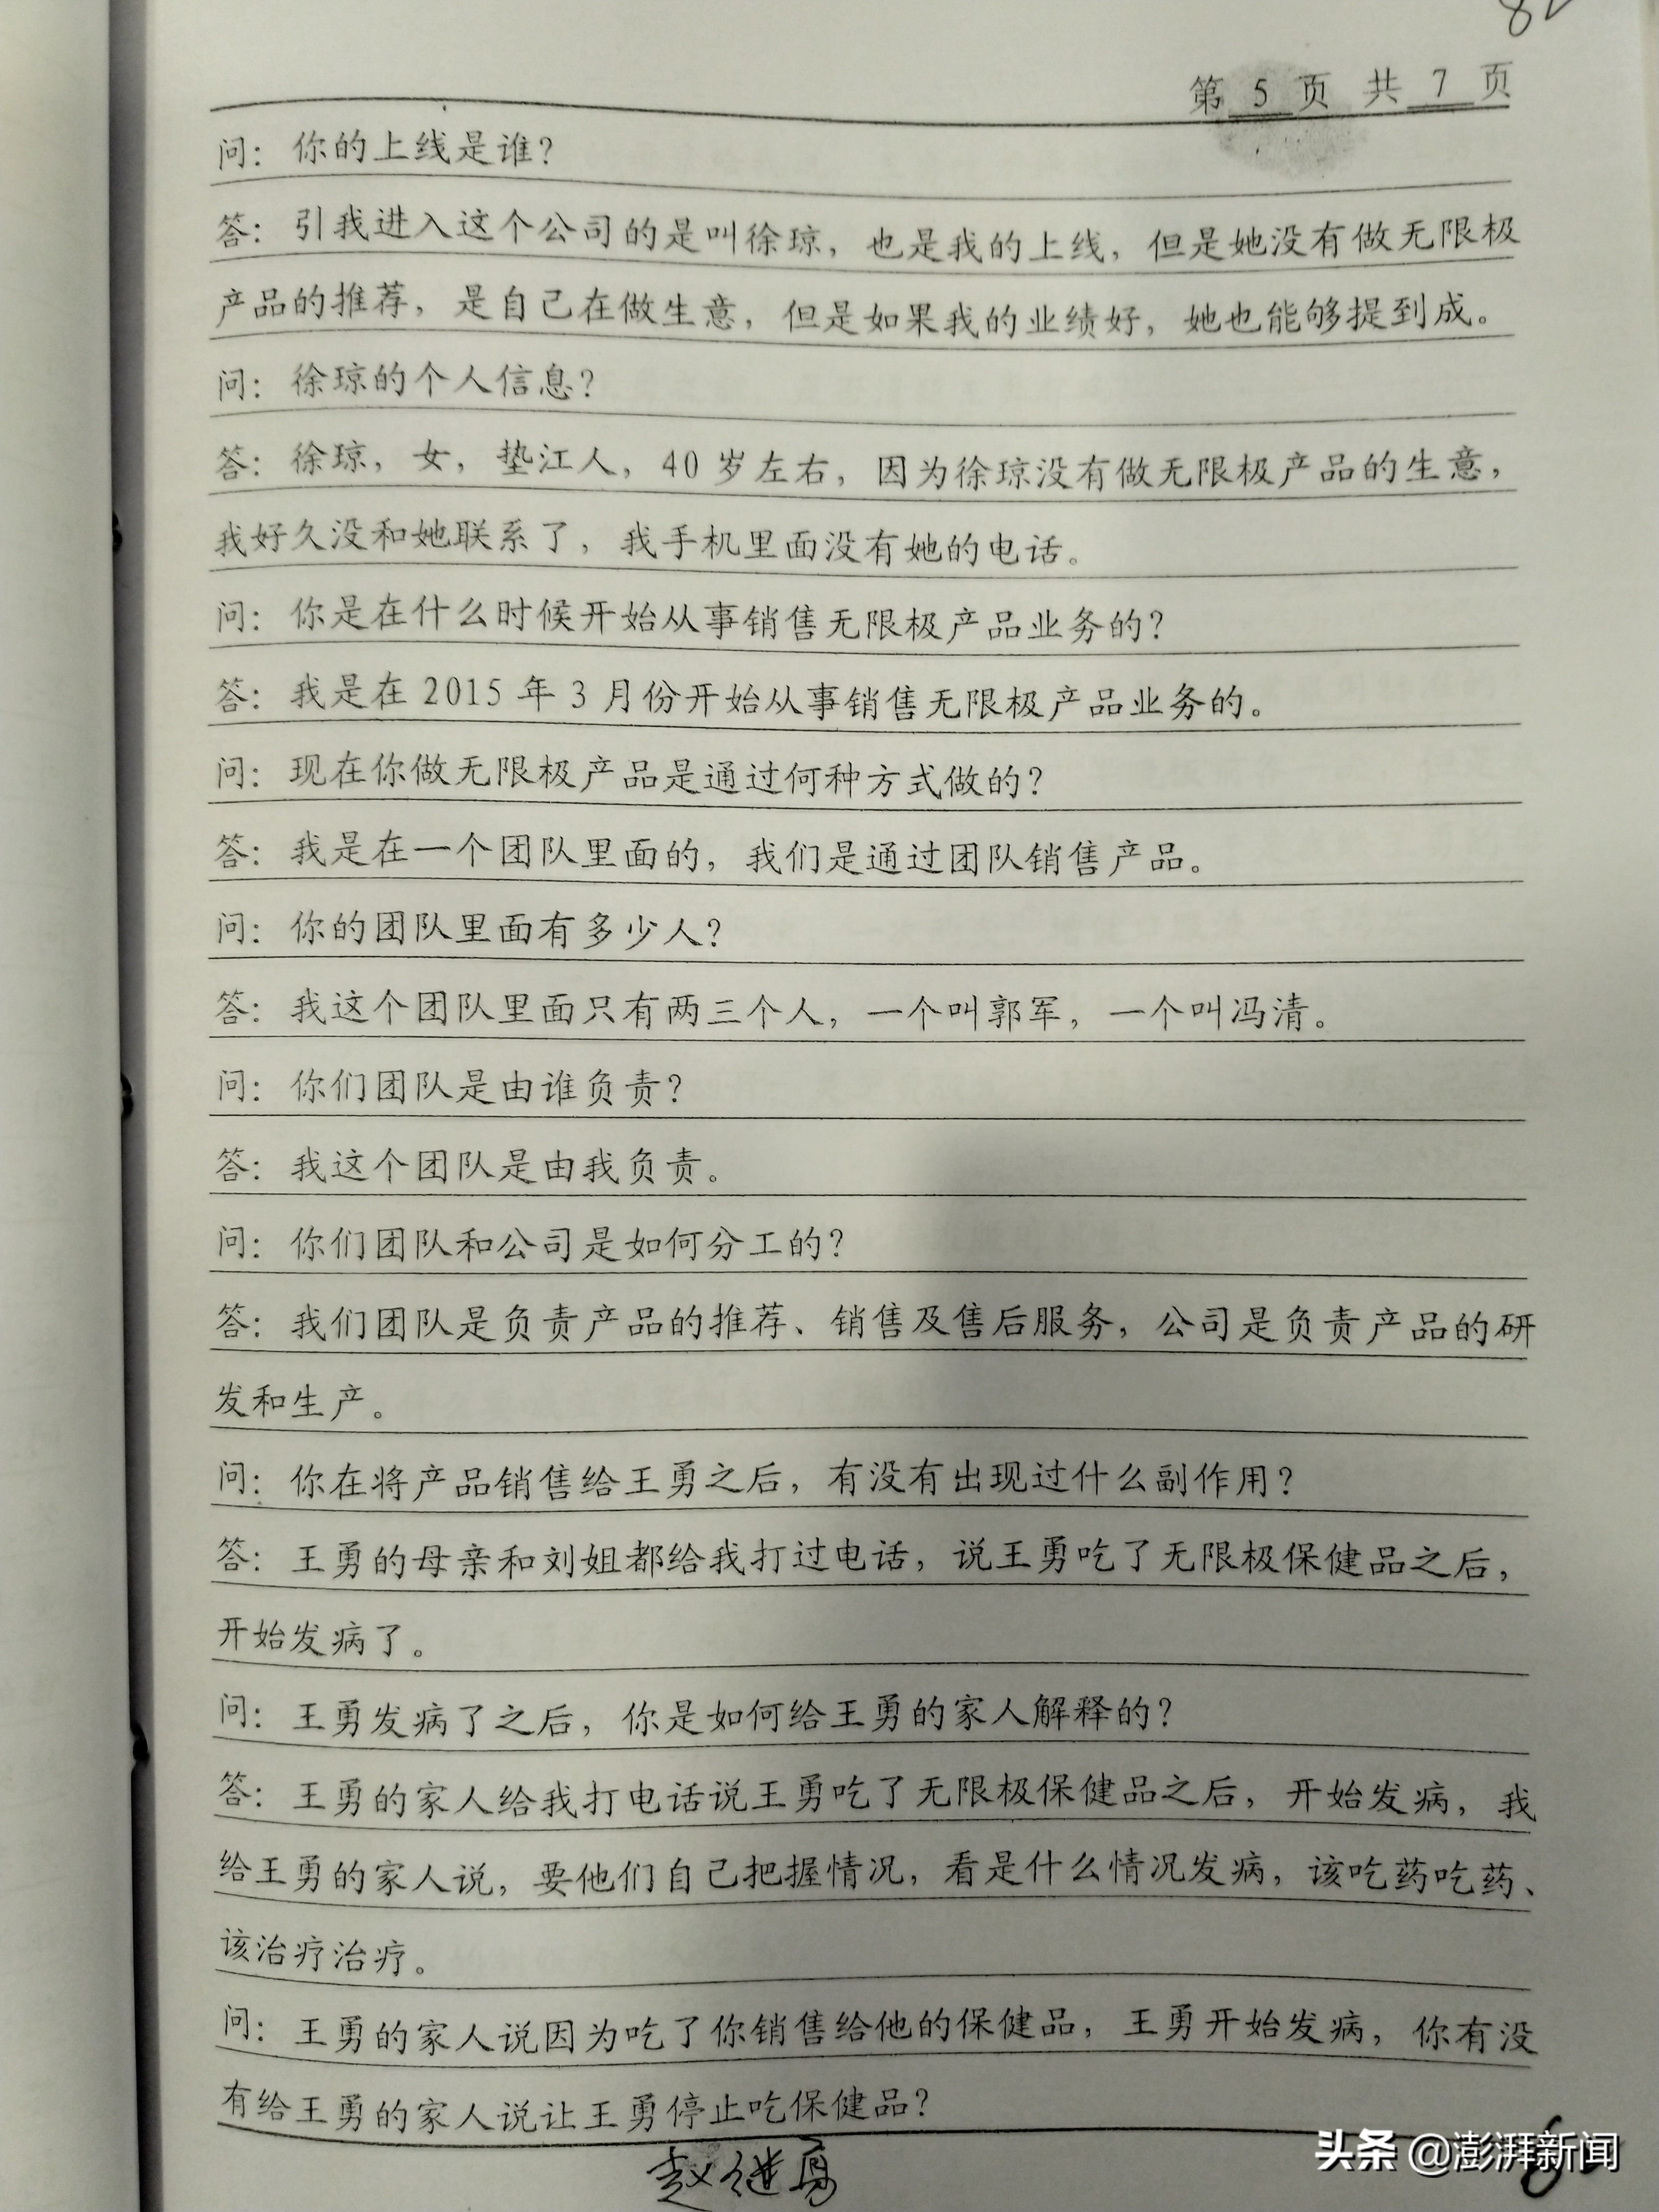 82
第 5 页 共 7 页
问：你的上线是谁？
答：引我进入这个公司的是叫徐琼，也是我的上线，但是她没有做无限极
产品的推荐，是自己在做生意，但是如果我的业绩好，她也能够提到成。
问：徐琼的个人信息？
答：徐琼，女，垫江人，40 岁左右，因为徐琼没有做无限极产品的生意，
我好久没和她联系了，我手机里面没有她的电话。
问：你是在什么时候开始从事销售无限极产品业务的？
答：我是在 2015 年 3 月份开始从事销售无限极产品业务的。
问：现在你做无限极产品是通过何种方式做的？
答：我是在一个团队里面的，我们是通过团队销售产品。
问：你的团队里面有多少人？
答：我这个团队里面只有两三个人，一个叫郭军，一个叫冯清。
问：你们团队是由谁负责？
答：我这个团队是由我负责。
问：你们团队和公司是如何分工的？
答：我们团队是负责产品的推荐、销售及售后服务，公司是负责产品的研
发和生产。
问：你在将产品销售给王勇之后，有没有出现过什么副作用？
答：王勇的母亲和刘姐都给我打过电话，说王勇吃了无限极保健品之后，
开始发病了。
问：王勇发病了之后，你是如何给王勇的家人解释的？
答：王勇的家人给我打电话说王勇吃了无限极保健品之后，开始发病，我
给王勇的家人说，要他们自己把握情况，看是什么情况发病，该吃药吃药、
该治疗治疗。
问：王勇的家人说因为吃了你销售给他的保健品，王勇开始发病，你有没
有给王勇的家人说让王勇停止吃保健品？
赵继
头条 @澎湃新闻